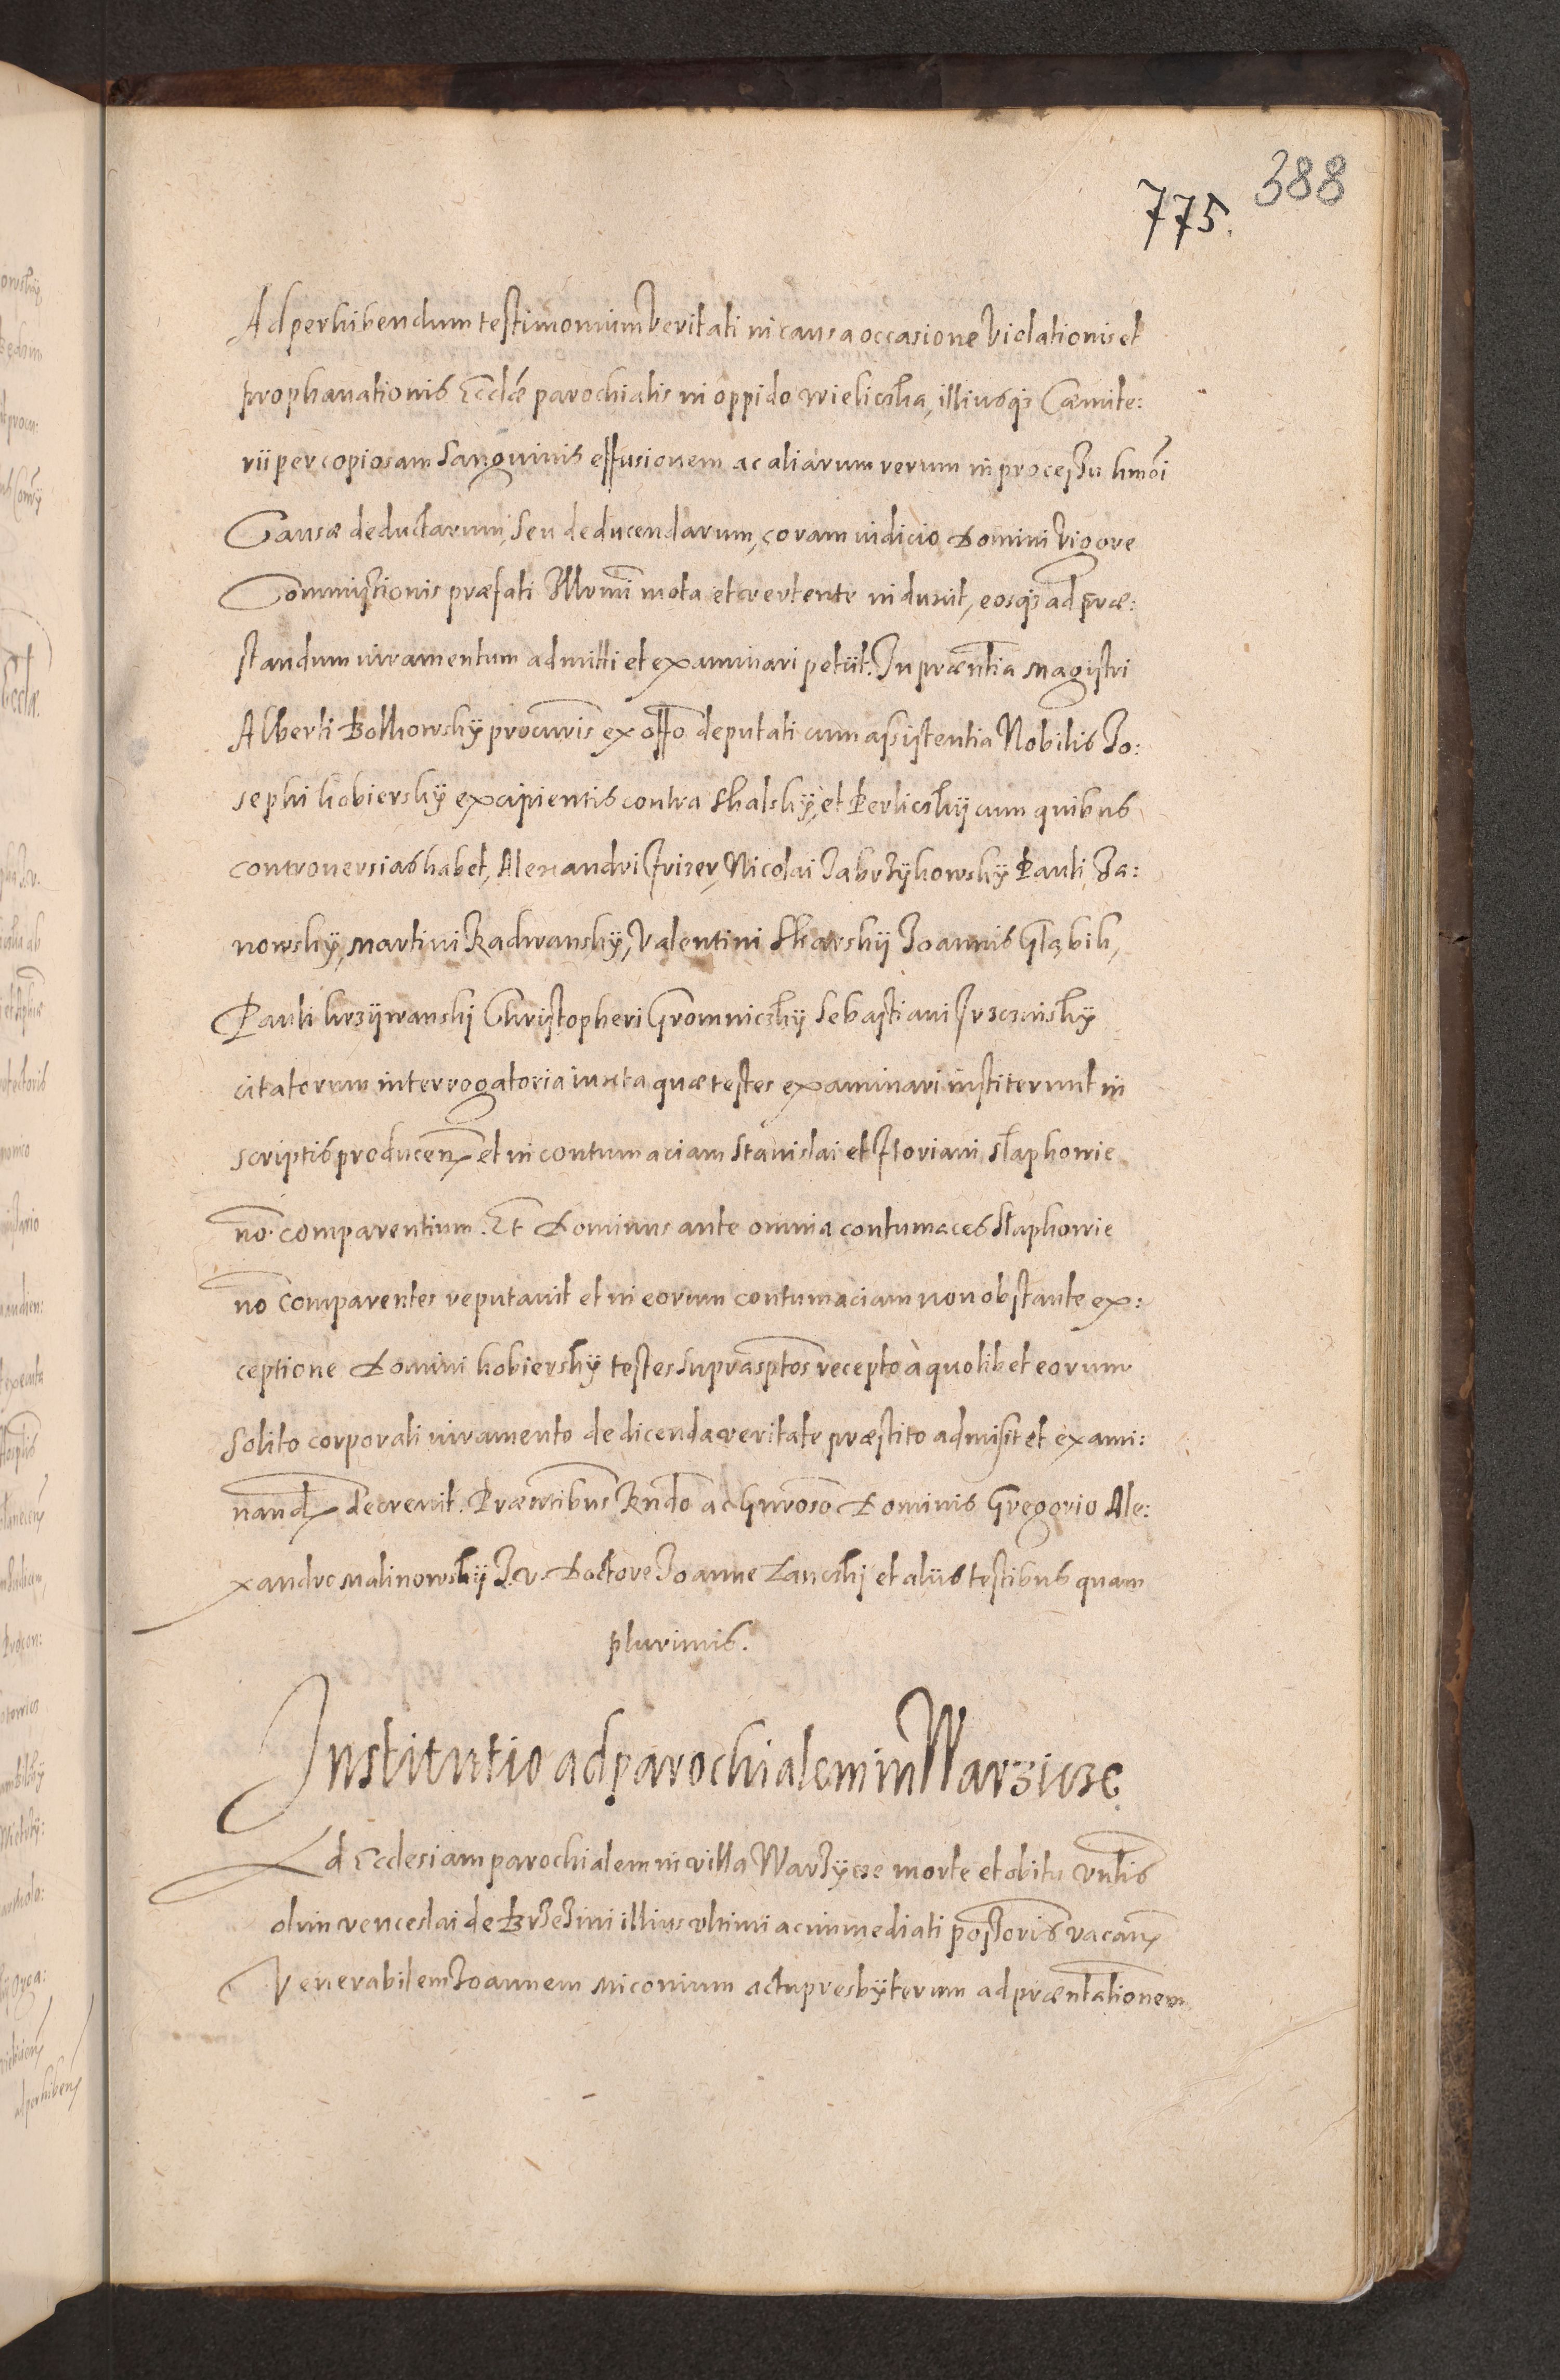 388
775.
Ad perhibendum testimonium veritati in causa occasione violationis et
prophanationis Ecclæ parochialis in oppido Wieliczka, illiusq; Cæmite:
rii per copiosam Sanguinis effusionem ac aliarum rerum in processu hmõi
Causæ deductarum, seu deducendarum, coram iudicio Domini vigore
Commissionis præfati Illrmi mota et vertente induxit, eosq; ad præ:
standum iuramentum admitti et examinari petiit. In præntia Magistri
Alberti procuris ex offo deputati cum assistentia Nobilis Jo:
sephi Kobierskÿ excipientis contra Skalskÿ, et cum quibus
controversias habet, Alexandri Frizer, Nicolai Zabrzÿkowskÿ Pauli Ja:
nowskÿ, Martini Radwanskÿ, Valentini Skarskÿ Joannis Głąbik,
Pauli Krzÿwanskj Christopheri Gromniczkÿ Sebastiani
citatorum interrogatoria iuxta quæ testes examinari institerunt in
scriptis producen et in contumaciam Stanislai et Floriani Słaphowie
no comparentium. Et Dominus ante omnia contumaces Słaphowie
no comparentes reputavit et in eorum contumaciam non obstante ex:
ceptione Domini Kobierskÿ testes suprasptos recepto à quolibet eorum
solito corporali iuramento de dicenda veritate præstito admisit et exami:
nand decrevit. Præntibus Rndo ac Gnroso Dominis Gregorio Ale:
xandro Malinowskÿ J. V. Doctore Joanne Zanczkj et aliis testibus quam
plurimis.
Institutio ad parochialem in Warzicze
Ad Ecclesiam parochialem in villa Warzÿcze morte et obitu Vnlis
olim Venceslai de Brzezini illius ultimi ac immediati possoris vacan
Venerabilem Joannem Miconium actu presbÿterum ad præntationem